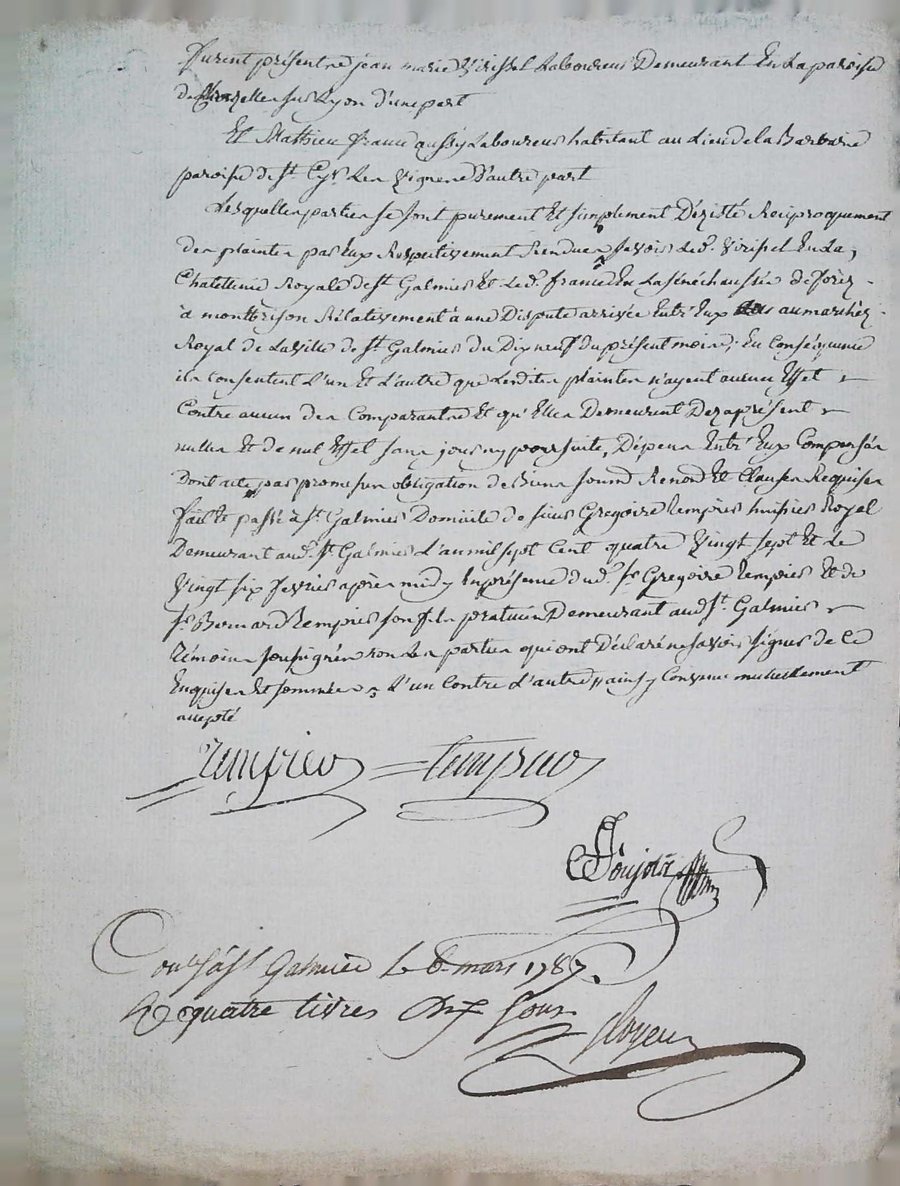 Furent présent jean marie Virissel Laboureur Demeurant En la paroisse
de Chazelles sur Lyon d'une part
Et Mathieu france aussy Laboureur habitant au Lieu de la Barboire
paroisse de St. Cyr Les Vignes d'autre part
Lesquelles parties se sont purement Et simplement Dézisté Réciproquement
des plaintes par Eux Respectivement Rendues savoir Led. Virissel En La
Chatellenie Royale de St Galmier Et Led. france En La sénéchaussée de forez
à montbrison Rélativement à une Dispute arrivée Entr'Eux au marché
Royal de La Ville de St. Galmier du Dix neuf du présent mois, En Conséquence
ils consentent L'un Et L'autre que Lesdites plaintes n'ayent aucun Effet
Contre aucun des Comparants Et qu'Elles Demeurent Dez aprésent
nulles Et de nul Effet sans jour ny poursuite, Dépens Entr'Eux Compensés
Dont acte par promesses obligation de Biens soumo Renon Et Clauses Requises
fait Et passé à St. Galmier Domicile de sieur Gregoire Rempier huissier Royal
Demeurant aud. St Galmier L'an mil sept Cent quatre Vingt sept Et Le
Vingt six fevrier après midy En présence dud. Sr Gregoire Rempier Et de
Sr. Bernard Rempier son fils praticien Demeurant aud St. Galmier
témoins soussignés non Les parties qui ont Déclaré ne savoir signer de Ce
Enquises Et sommées L'un Contre L'autre ainsy Convenu mutuellement
accepté
Rempier Rempier
Poujolat
Con.lé à St Galmier le 6 mars 1787.
R quatre livres dix sous
Royeu